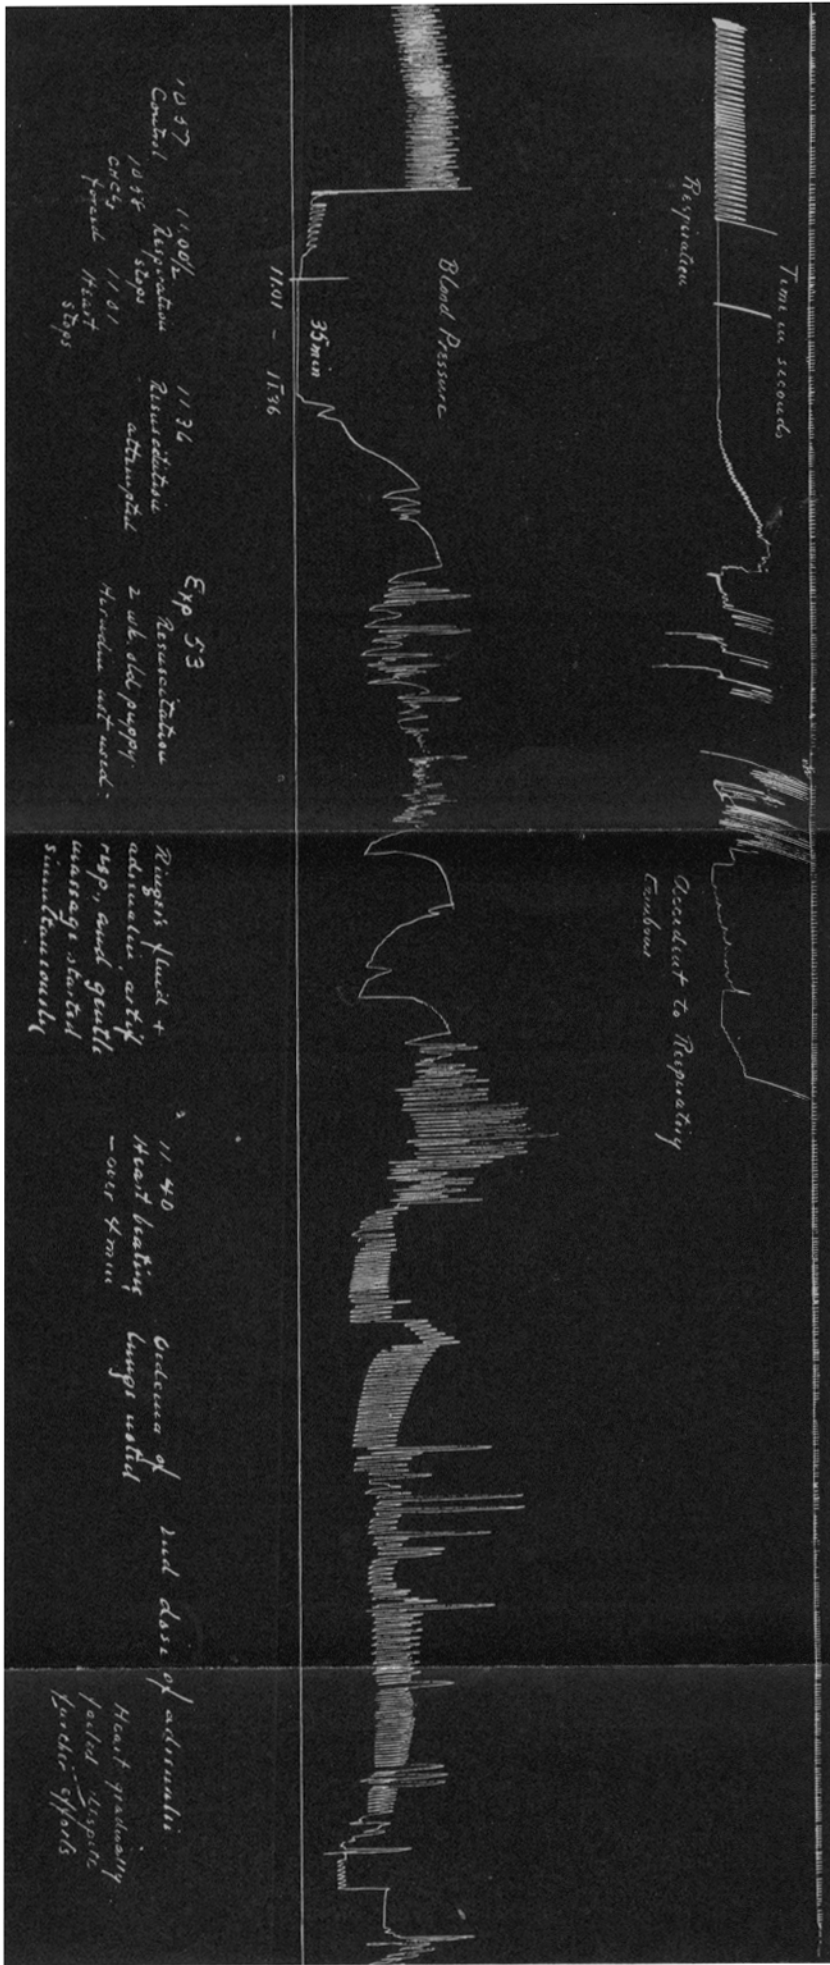 Time in seconds
Respiration
Blood Pressure
Accident to Respiratory
tambour
35 min
11.01 – 11.36
10 57
Control
10 58
CHCl3
forced
11.00½
Respiration
stops
11 01
Heart
stops
11 36
Resuscitation
attempted
Exp 53
Resuscitation
2 wk old puppy
Hirudin not used -
Ringers fluid +
adrenalin, artif
resp, and gentle
massage started
simultaneously
11.40
Heart beating
– over 4 min
Oedema of
lungs noted
2nd dose of adrenalin
Heart gradually
failed despite
further efforts